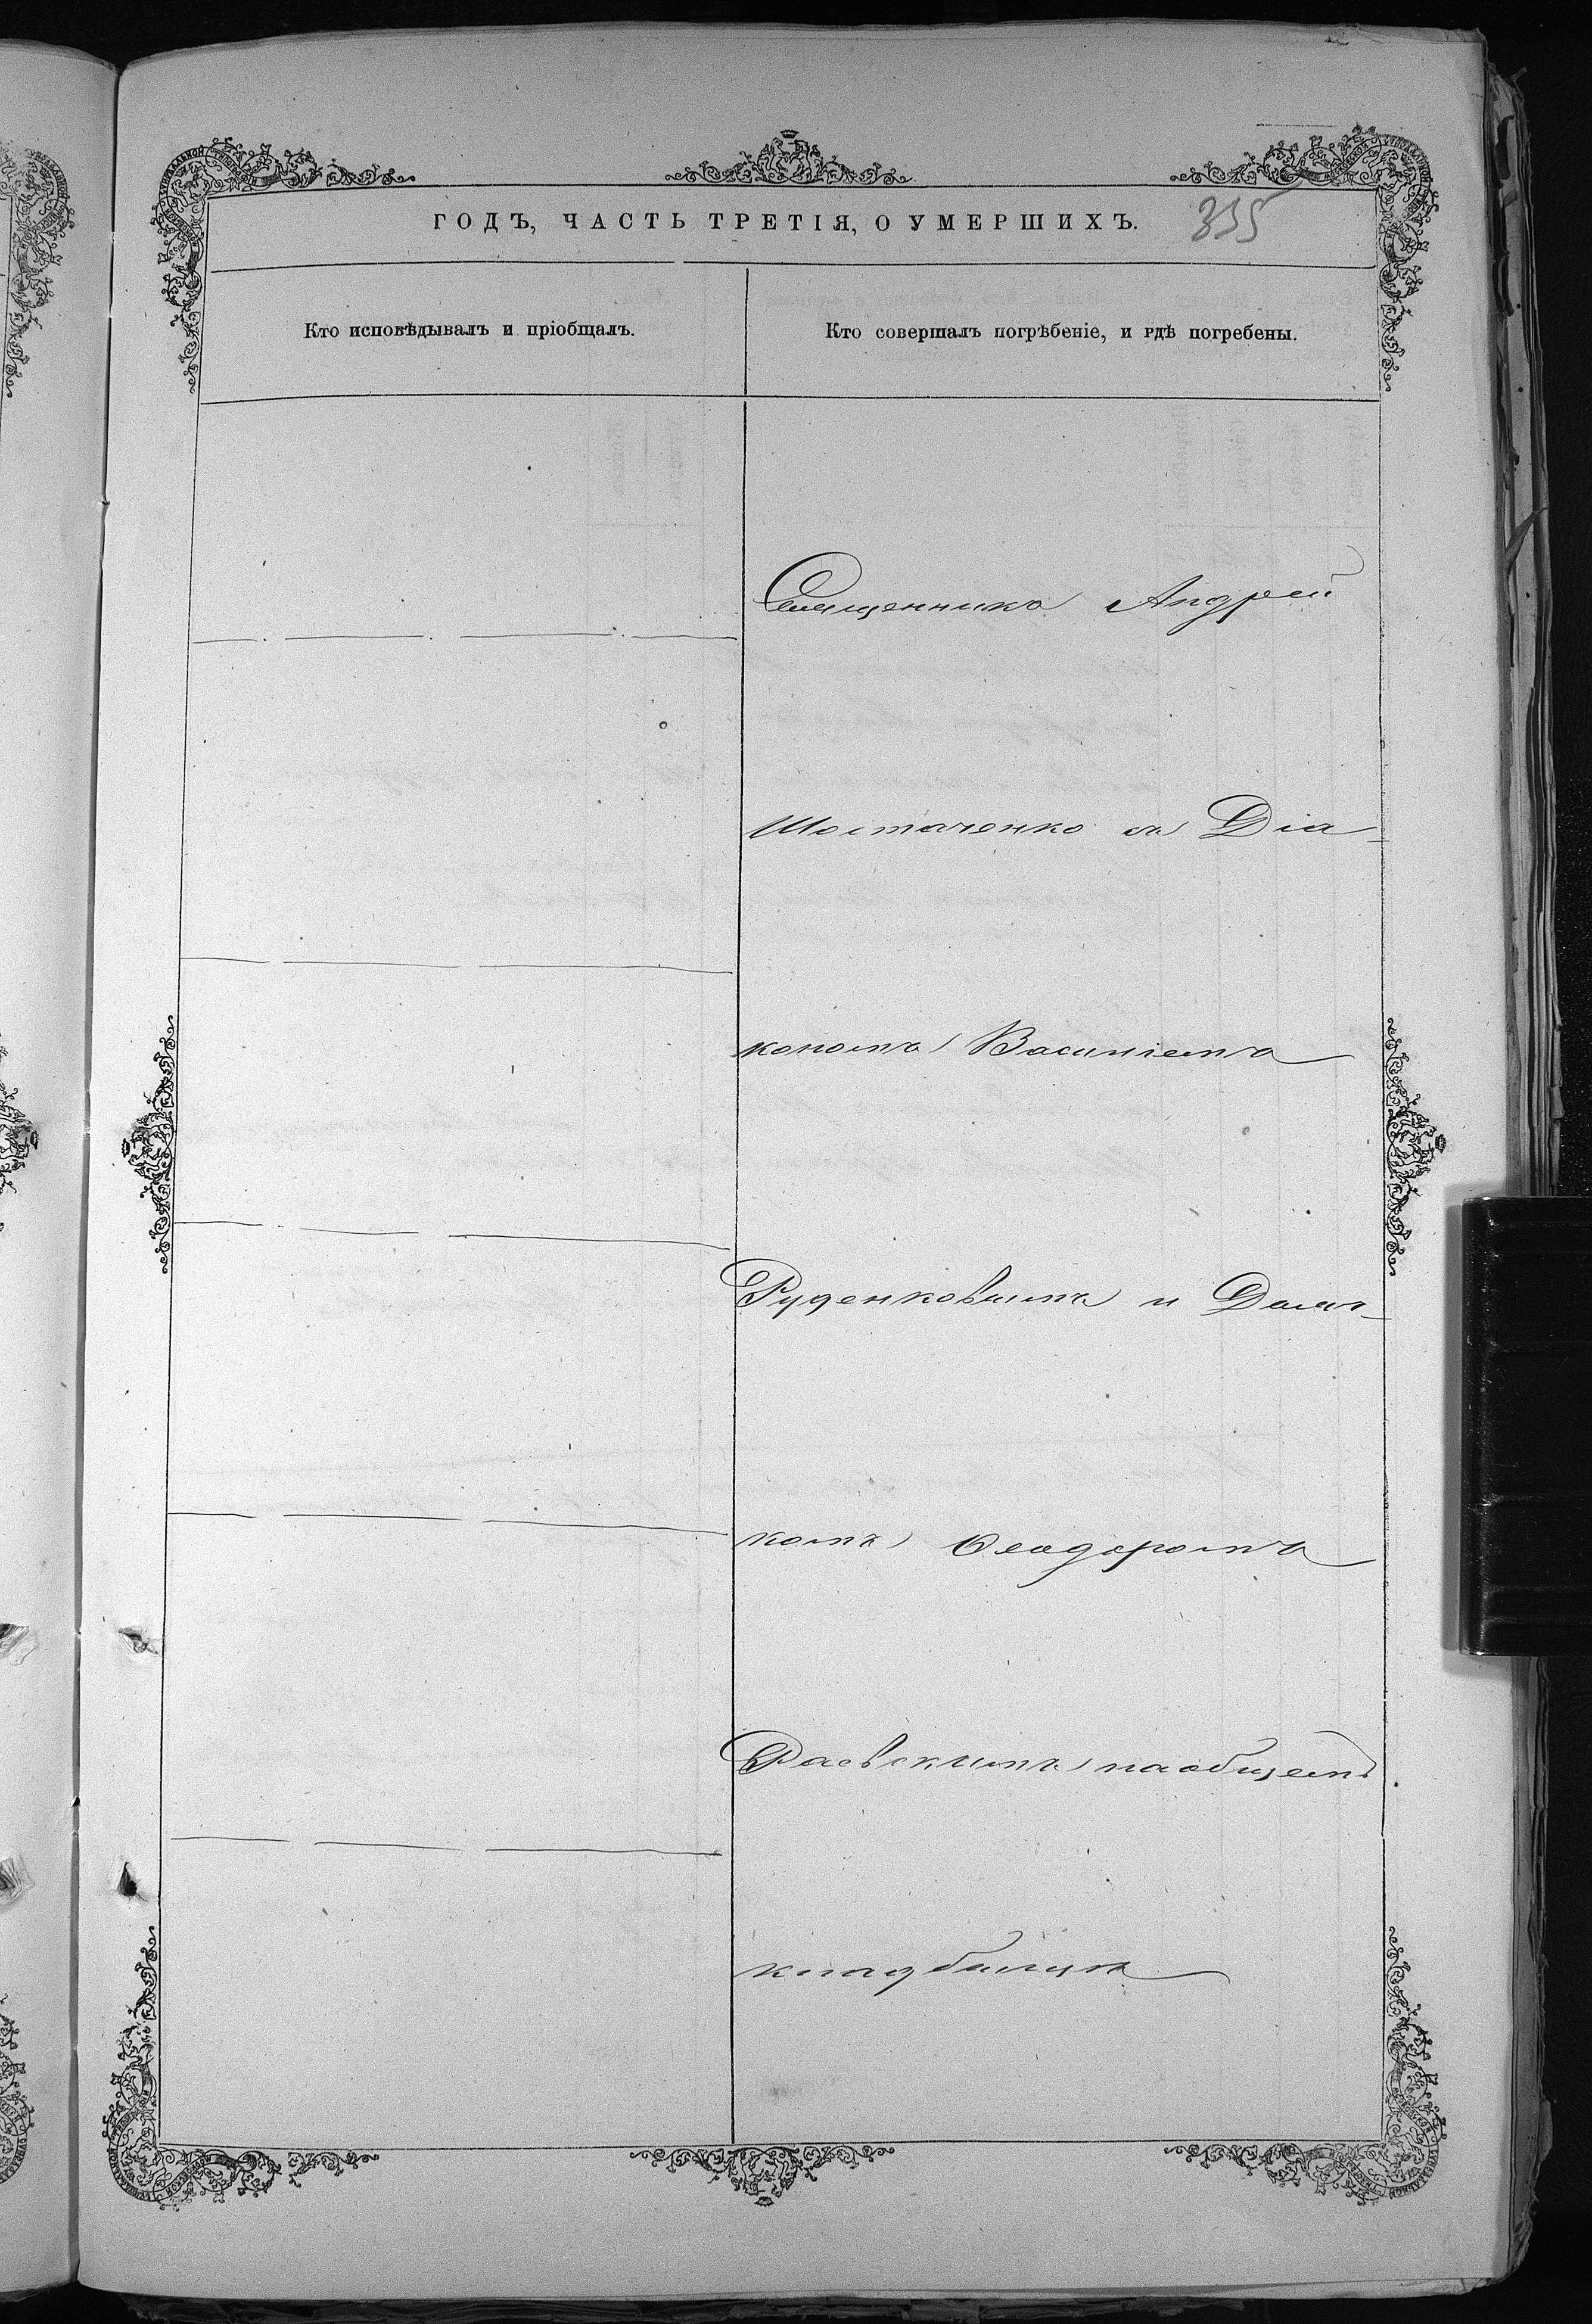 ГОДЪ, ЧАСТЬ ТРЕТІЯ, О УМЕРШИХЪ.
335
Кто исповѣдывалъ и пріобщалъ.
Кто совершалъ погрѣбеніе, и гдѣ погребены.
Священникъ Андрей
Шостаченко съ Діа-
кономъ Василіемъ
Руденковымъ и Дьяч-
комъ Ѳеодоромъ
Раевскимъ на общемъ
кладбищѣ